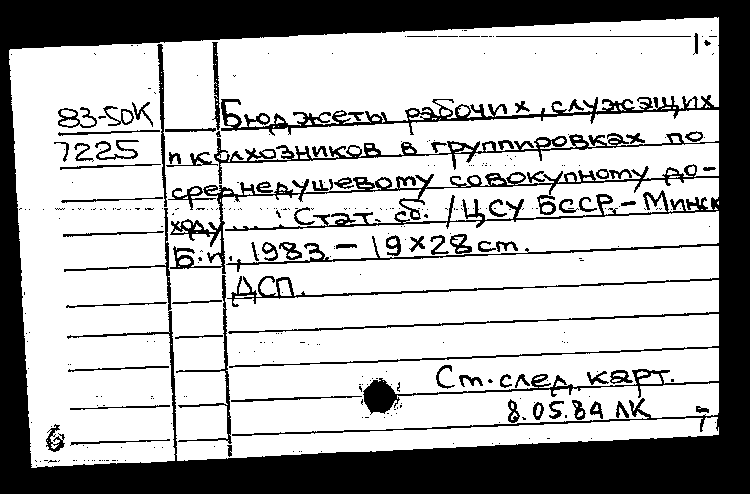 1.
83-50К Бюджеты рабочих, служащих
7225 и колхозников в группировках по
среднедушевому совокупному до-
ходу ... : Стат. сб. / ЦСУ БССР. - Минск
Б.и., 1983. - 19×28 cm.
ДСП.
Ст. след. карт.
8.05.84 ЛК
6